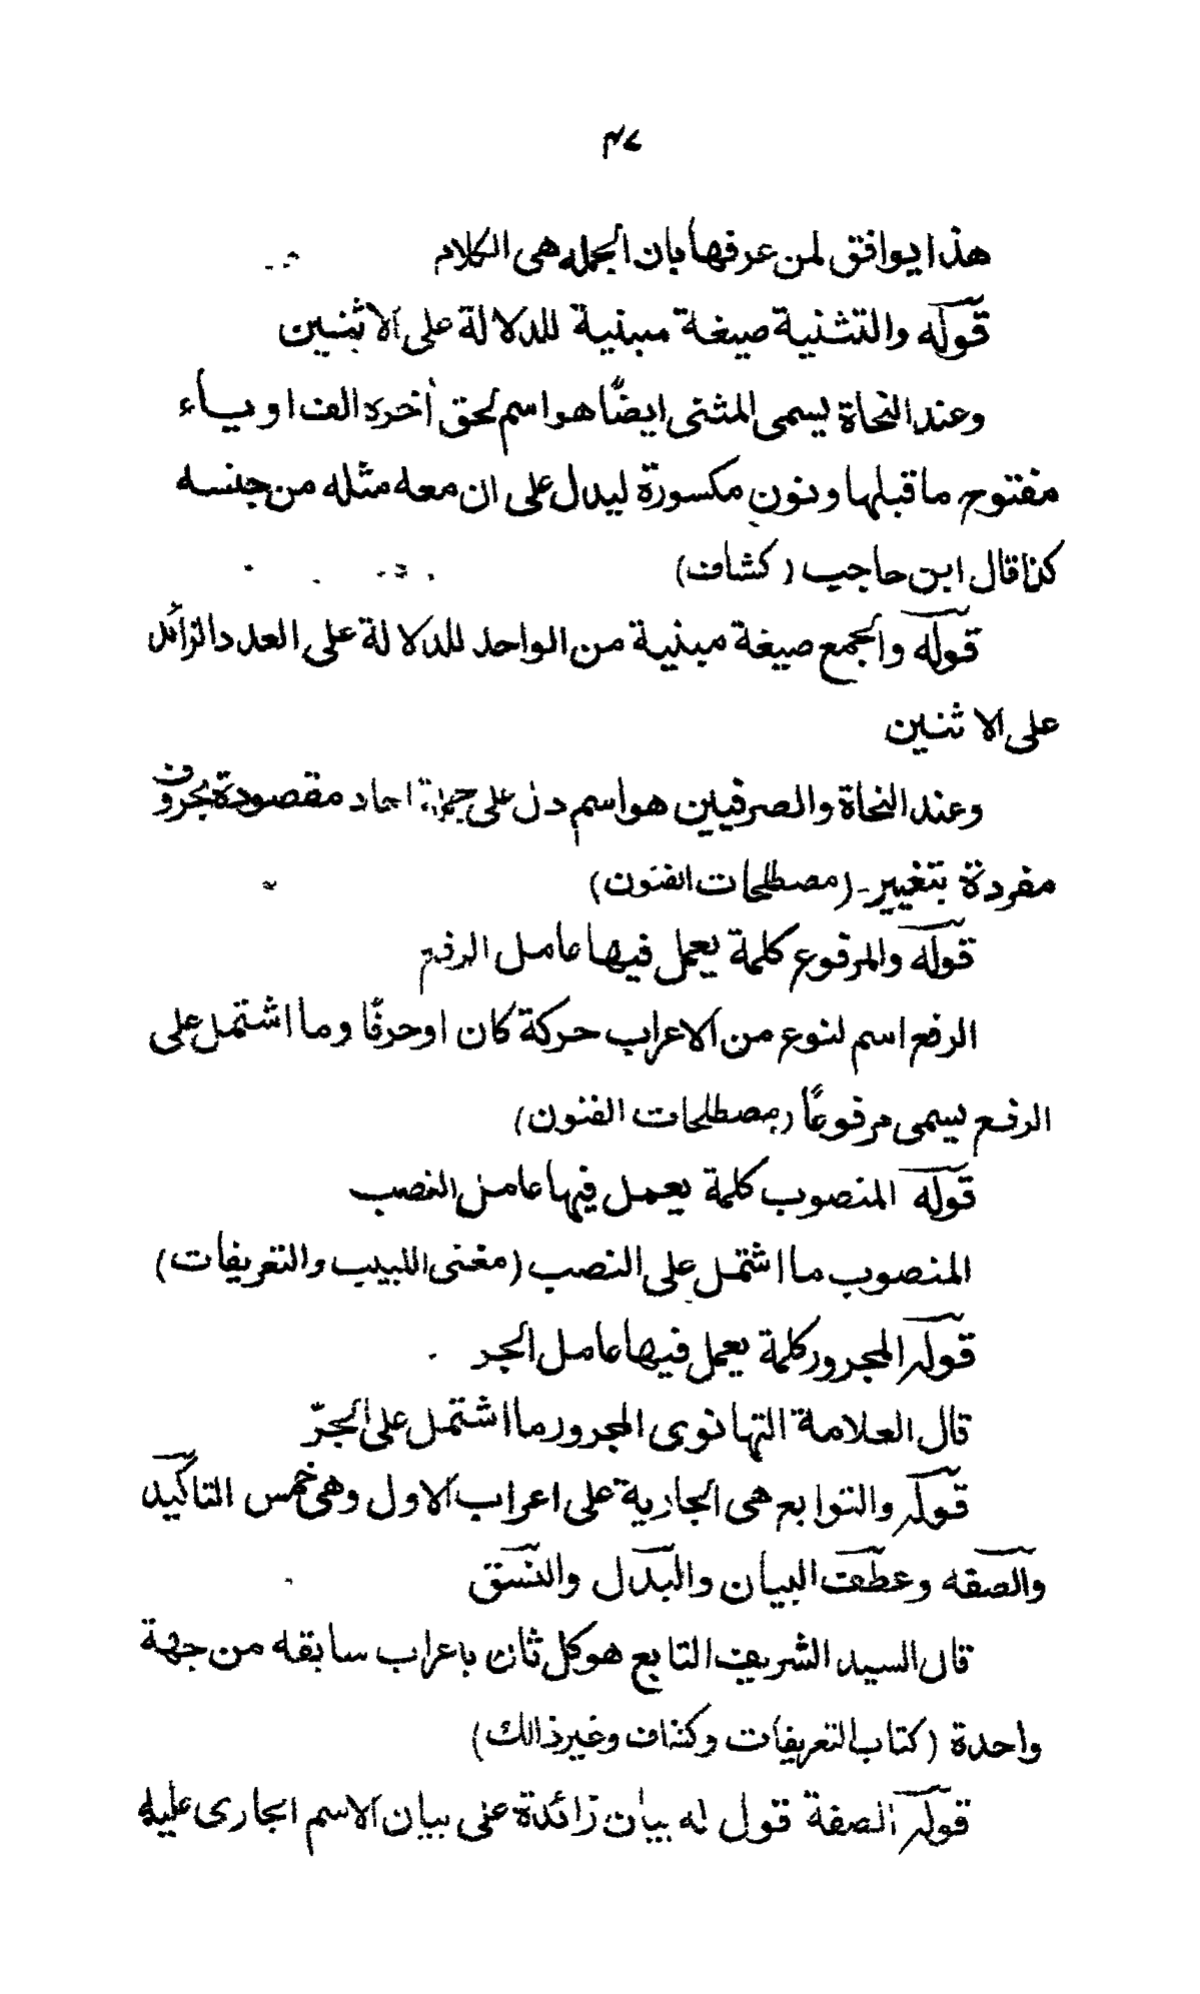 ۴۷
هذا يوافق لمن عرفها بان الجمله هى الكلام
قوله والتثنية صيغة مبنية للدلالة على الاثنين
وعند النحاة يسمى المثنى ايضًا هو اسم لحق أخره الف او ياء
مفتوح ما قبلها ونون مكسورة ليدل على ان معه مثله من جنسه
كذا قال ابن حاجب (كشاف)
قوله والجمع صيغة مبنية من الواحد للدلالة على العدد الزائد
على الاثنين
وعند النحاة والصرفيين هو اسم دل على جملة احاد مقصودة بحروف
مفردة بتغيير۔ (مصطلحات الفنون)
قوله والمرفوع كلمة يعمل فيها عامل الرفع
الرفع اسم لنوع من الاعراب حركة كان او حرفًا وما اشتمل على
الرفع يسمى مرفوعًا (مصطلحات الفنون)
قوله المنصوب كلمة يعمل فيها عامل النصب
المنصوب ما اشتمل على النصب (مغنى اللبيب والتعريفات)
قوله المجرور كلمة يعمل فيها عامل الجر
قال العلامة التهانوى المجرور ما اشتمل على الجرّ
قوله والتوابع هى الجارية على اعراب الاول وهى خمس التاكيد
والصفه وعطف البيان والبدل والنسق
قال السيد الشريف التابع هو كل ثان باعراب سابقه من جهة
واحدة (كتاب التعريفات وكشاف وغير ذالك)
قوله الصفة قول له بيان زائدة على بيان الاسم الجارى عليه